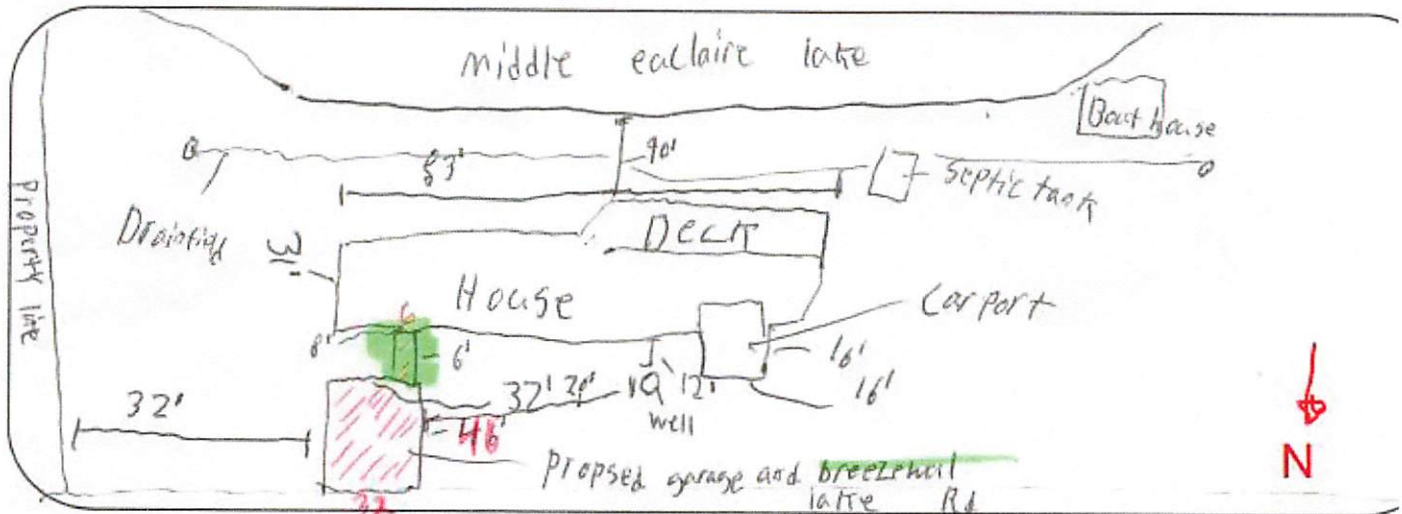 middle eaclaire lake
Boat house
83'
90'
septic tank
Property line
31'
DECK
House
Carport
6
8'
6'
16'
16'
32'
32'
12'
well
46'
Propsed garage and
lake Rd
32
N